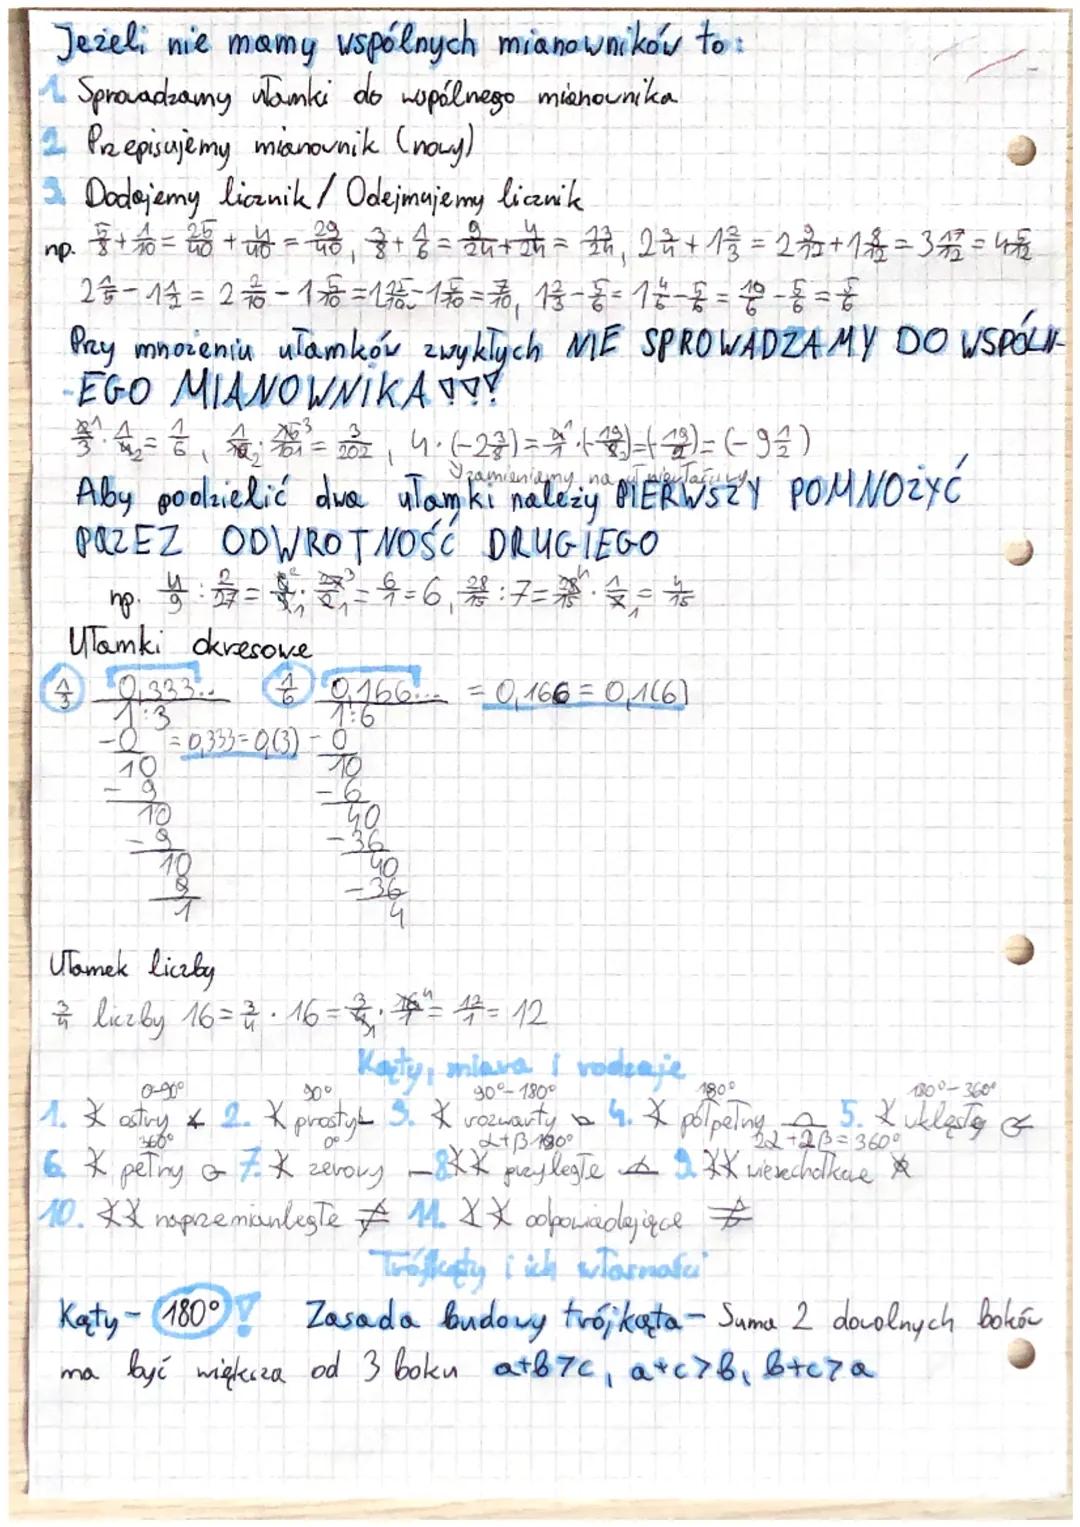 Jeżeli nie mamy wspólnych mianowników to:
1. Sprowadzamy ułamki do wspólnego mianownika
2. Przepisujemy mianownik (nowy)
3. Dodajemy licznik / Odejmujemy licznik
np. 5/8 + 1/10 = 25/40 + 4/40 = 29/40, 3/8 + 1/6 = 9/24 + 4/24 = 13/24, 2 3/4 + 1 2/3 = 2 9/12 + 1 8/12 = 3 17/12 = 4 5/12
2 1/5 - 1 1/2 = 2 2/10 - 1 5/10 = 1 12/10 - 1 5/10 = 7/10, 1 2/3 - 5/6 = 1 4/6 - 5/6 = 10/6 - 5/6 = 5/6
Przy mnożeniu ułamków zwykłych NIE SPROWADZAMY DO WSPÓLN-
EGO MIANOWNIKA !!!
= 1/6, = 3/202, 4 · (-2 3/8) = = (-9 1/2)
zamieniamy na
Aby podzielić dwa ułamki należy PIERWSZY POMNOŻYĆ
PRZEZ ODWROTNOŚĆ DRUGIEGO
np. 4/9 : 2/27 = = 6/1 = 6, 28/15 : 7 = 28/15 · 1/7 = 4/15
Ułamki okresowe
1/3 0,333.. 1/6 0,166... = 0,166 = 0,1(6)
1:3 1:6
-0 = 0,333 = 0,(3) -0
10 10
-9 -6
10 40
-9 -36
10 40
9 -36
1 4
Ułamek liczby
3/4 liczby 16 = 3/4 · 16 = 3/4 · 16/1 = 12/1 = 12
Kąty, miara i rodzaje
0-90° 90° 90°-180° 180° 180°-360°
1. ∡ ostry 2. ∡ prosty 3. ∡ rozwarty 4. ∡ półpełny 5. ∡ wklęsły
360° 0° α+β=180° 2α+2β=360°
6. ∡ pełny 7. ∡ zerowy 8. ∡∡ przyległe 9. ∡∡ wierzchołkowe
10. ∡∡ naprzemianległe 11. ∡∡ odpowiadające
Trójkąty i ich własności
Kąty - 180° ! Zasada budowy trójkąta - Suma 2 dowolnych boków
ma być większa od 3 boku a+b>c, a+c>b, b+c>a